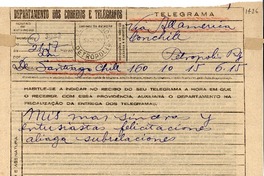 DEPARTAMENTO DOS CORREIOS E TELÉGRAFOS
TELEGRAMA
1936
Via All America
Conchili
PETROPOLIS
Petropolis
De Santiago Chile 160 10 15 6.15
HABITUE-SE A INDICAR NO RECIBO DO SEU TELEGRAMA A HORA EM QUE
O RECEBER. COM ESSA PROVIDENCIA, AUXILIARÁ O DEPARTAMENTO NA
FISCALIZAÇÃO DA ENTREGA DOS TELEGRAMAS.
Mis mas sinceras y
entusiastas felicitaciones
aliaga subrelaciones